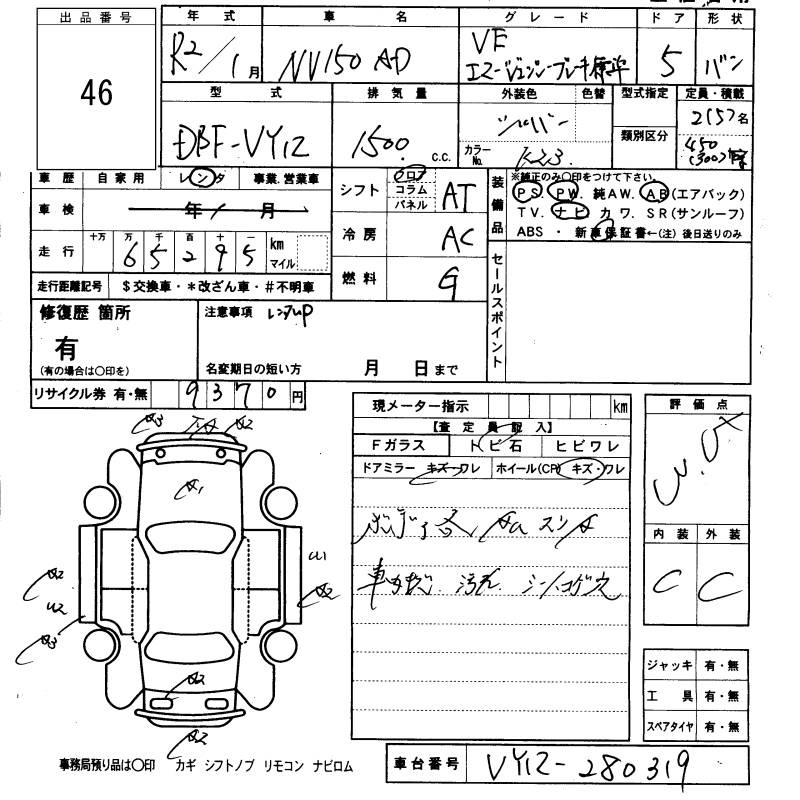 出品番号
46
年式 車名 グレード ドア 形状
R2/1月 NV150 AD VE 5 バン
エマージェンシーブレーキ標準
型式 排気量 外装色 色替 型式指定 定員・積載
DBF-VY12 1500 c.c. シルバー 類別区分 2(5)名
カラーNo. K23 450(300)
車歴 自家用 レンタ 事業.営業車
車検 年 月
走行 十万 万 千 百 十 一 km マイル
6 5 2 9 5
走行距離記号 $交換車・*改ざん車・#不明車
シフト フロア コラム パネル AT
冷房 AC
燃料 G
装備品
※純正のみ○印をつけて下さい。
PS. PW. 純AW. AB(エアバック)
TV. ナビ カワ. SR(サンルーフ)
ABS ・ 新車保証書←(注) 後日送りのみ
セールスポイント
修復歴 箇所
有
(有の場合は○印を)
注意事項 レンタUP
名変期日の短い方 月 日まで
リサイクル券 有・無 9370円
現メーター指示 km
【査定員記入】
Fガラス トビ石 ヒビワレ
ドアミラー キズ・ワレ ホイール(CP) キズ・ワレ
車内 汚れ. シートコゲ穴
評価点
内装 外装
C C
A3 A2
A1
A2
U2
A3
U1
A2
A2
A2
ジャッキ 有・無
工具 有・無
スペアタイヤ 有・無
事務局預り品は○印 カギ シフトノブ リモコン ナビロム
車台番号 VY12-280319